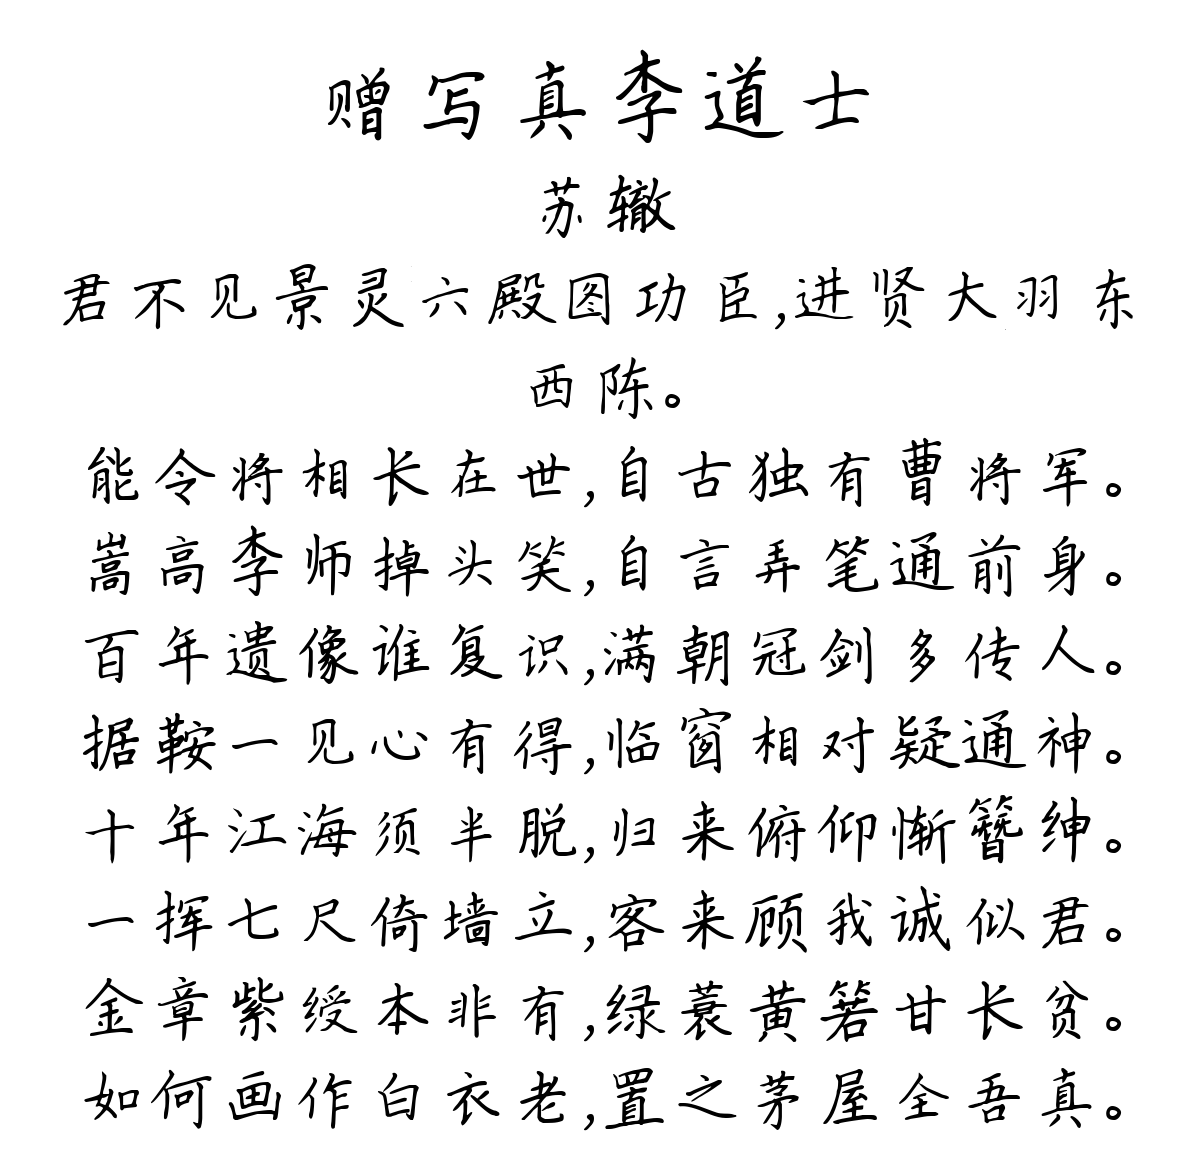 赠写真李道士
苏辙
君不见景灵六殿图功臣,进贤大羽东
西陈。
能令将相长在世,自古独有曹将军。
嵩高李师掉头笑,自言弄笔通前身。
百年遗像谁复识,满朝冠剑多传人。
据鞍一见心有得,临窗相对疑通神。
十年江海须半脱,归来俯仰惭簪绅。
一挥七尺倚墙立,客来顾我诚似君。
金章紫绶本非有,绿蓑黄箬甘长贫。
如何画作白衣老,置之茅屋全吾真。